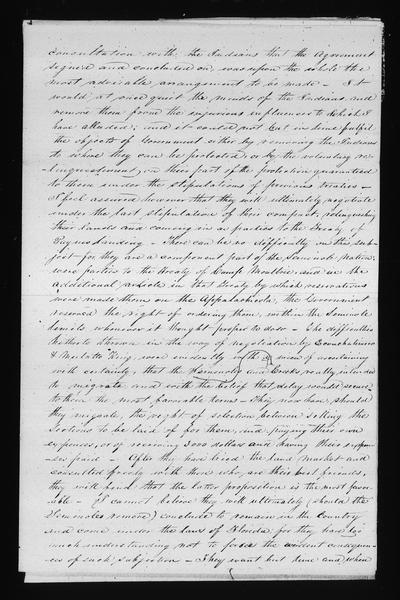 consultation with the Indians that the agreement
signed and concluded on, was upon the whole the
most advisable arrangement to be made – It
would at once quiet the minds of the Indians and
remove them from the injurious influences to which I
have alluded; and it could not but in time fulfil
the objects of Government either by removing the Indians
to where they can be protected, or by the voluntary re-
linquishment on their part of the protection guaranteed
to them under the stipulations of previous treaties –
I feel assured however that they will ultimately negotiate
under the last stipulation of their compact, relinquishing
their lands and coming in as parties to the Treaty of
Paynes Landing – There can be no difficulty on the sub-
ject for they are a component part of the Seminole Nation,
were parties to the Treaty of Camp Moultrie and in the
additional article in that Treaty by which reservations
were made them on the Appalachicola, the Government
reserved the right of ordering them, within the Seminole
limits whenever it thought proper to do so – The difficulties
hitherto thrown in the way of negotiation by
& Mulatto King, were evidently in the means of ascertaining
with certainty, that the Seminoles and Creeks really intended
to migrate and with the belief that delay would secure
to them the most favorable terms – They now have, should
they migrate, the right of selection between selling the
Sections to be laid of for them, and paying their own
expenses, or of receiving 3000 dollars and having their expen-
ses paid – After they have tried the land market and
consulted freely with those who are their best friends,
they will find that the latter proposition is the most favor-
able – I cannot believe they will ultimately (should the
Seminoles remove) conclude to remain in the Country
and come under the laws of Florida for they have too
much understanding not to foresee the evident consequen-
ces of such subjection – They want but time and when